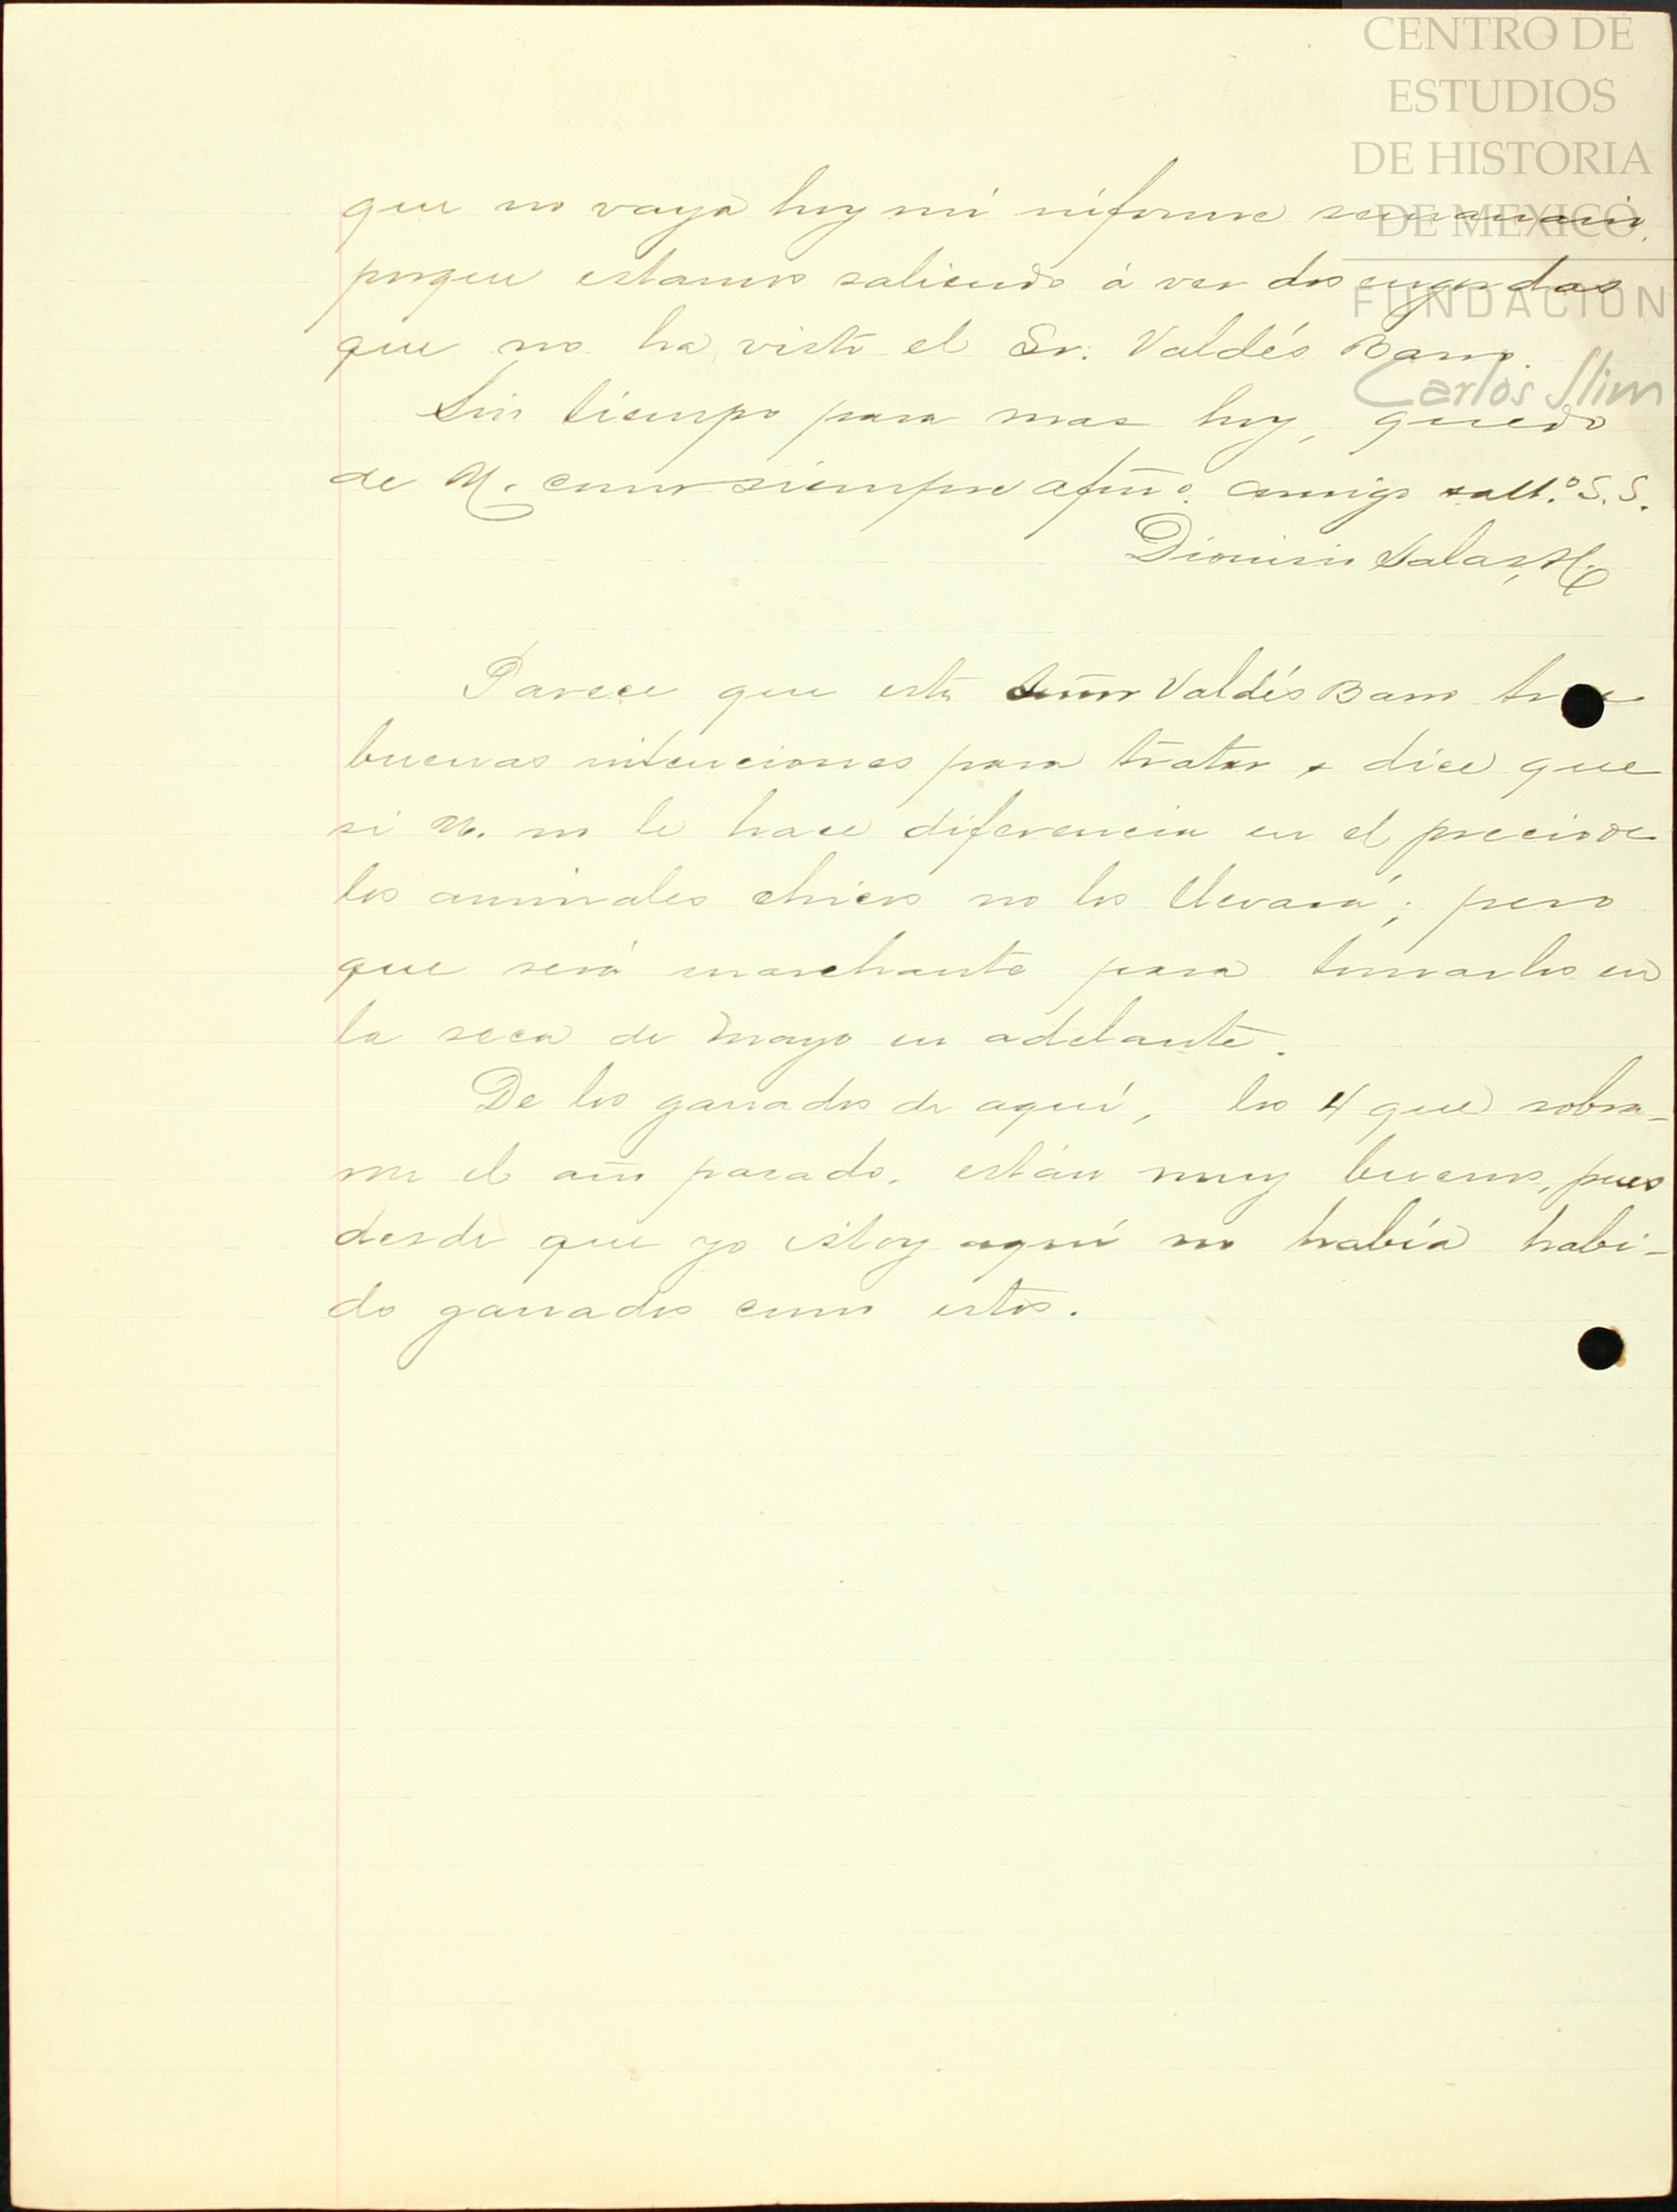 CENTRO DE
ESTUDIOS
DE HISTORIA
DE MEXICO
FUNDACION
Carlos Slim
que no vaya hoy mi informe semanario,
porque estamos saliendo á ver dos engordas
que no ha visto el Sr. Valdés Barro.
Sin tiempo para mas hoy, quedo
de U. como siempre afmo. amigo S. S.
Dionisio Salas H.
Parece que este Señor Valdés Barro trae
buenas intenciones para tratar y dice que
si U. no le hace diferencia en el precio de
los animales chicos no los llevará; pero
que será marchante para tomarlos en
la seca de Mayo en adelante.
De los ganados de aquí, los 4 que sobra-
ron el año pasado, están muy buenos, pues
desde que yo estoy aquí no había habi-
do ganados como estos.